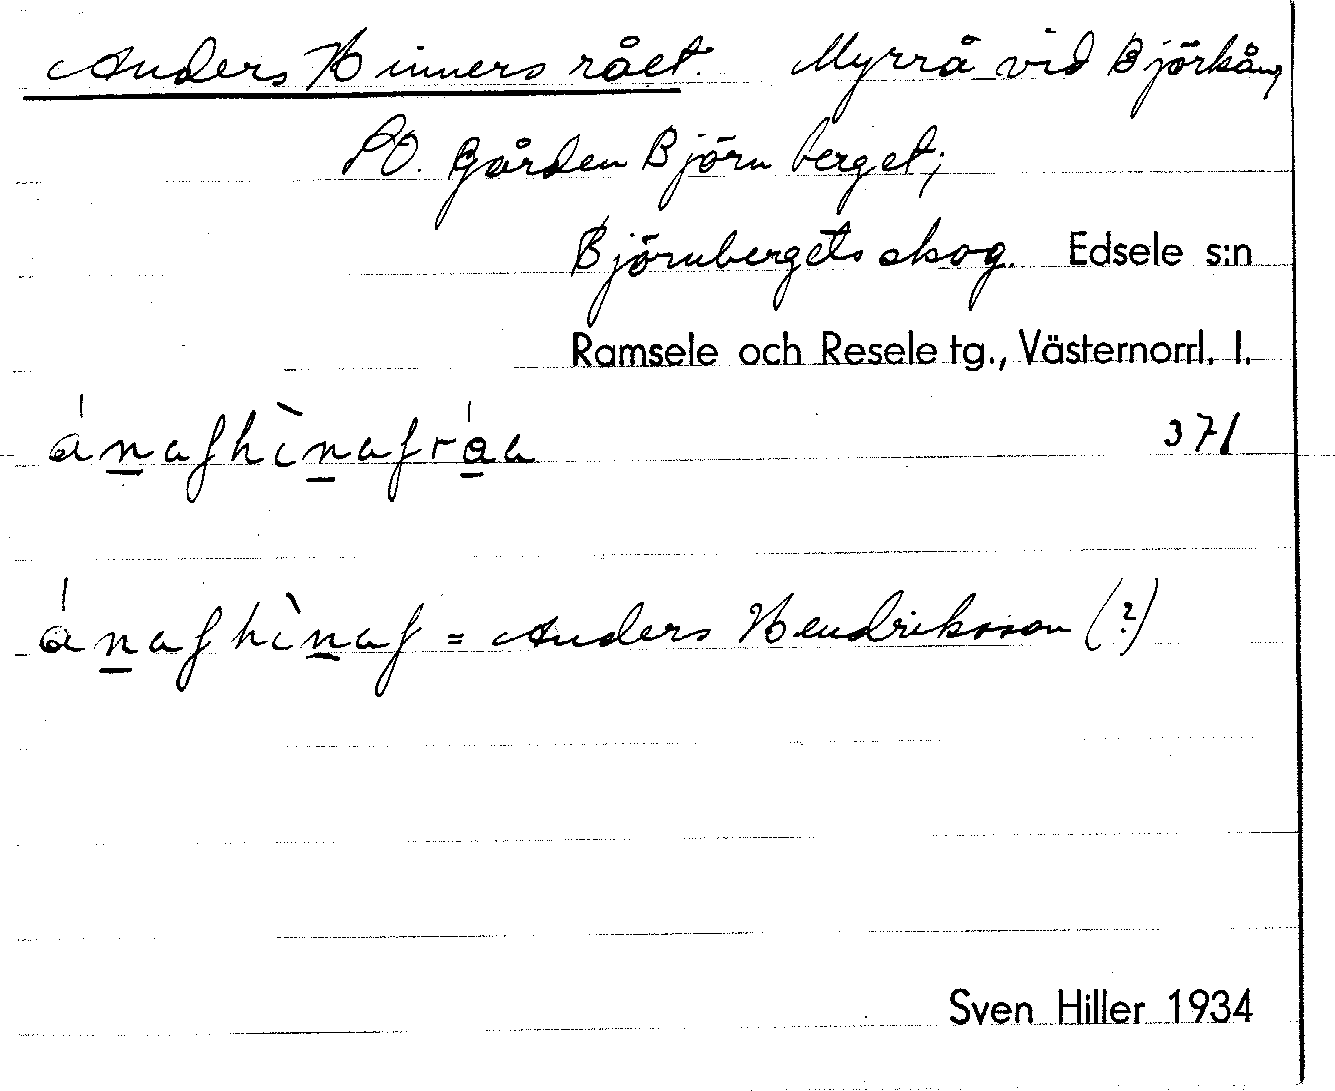 Anders Hinners rået. Myrrå vid Björkång
SO. Gården Björnberget;
Björnbergets skog. Edsele s:n
Ramsele och Resele tg., Västernorrl. l.
ánaʃhìnaʃráa 371
ánaʃhìnaʃ = Anders Hendriksson (?)
Sven Hiller 1934